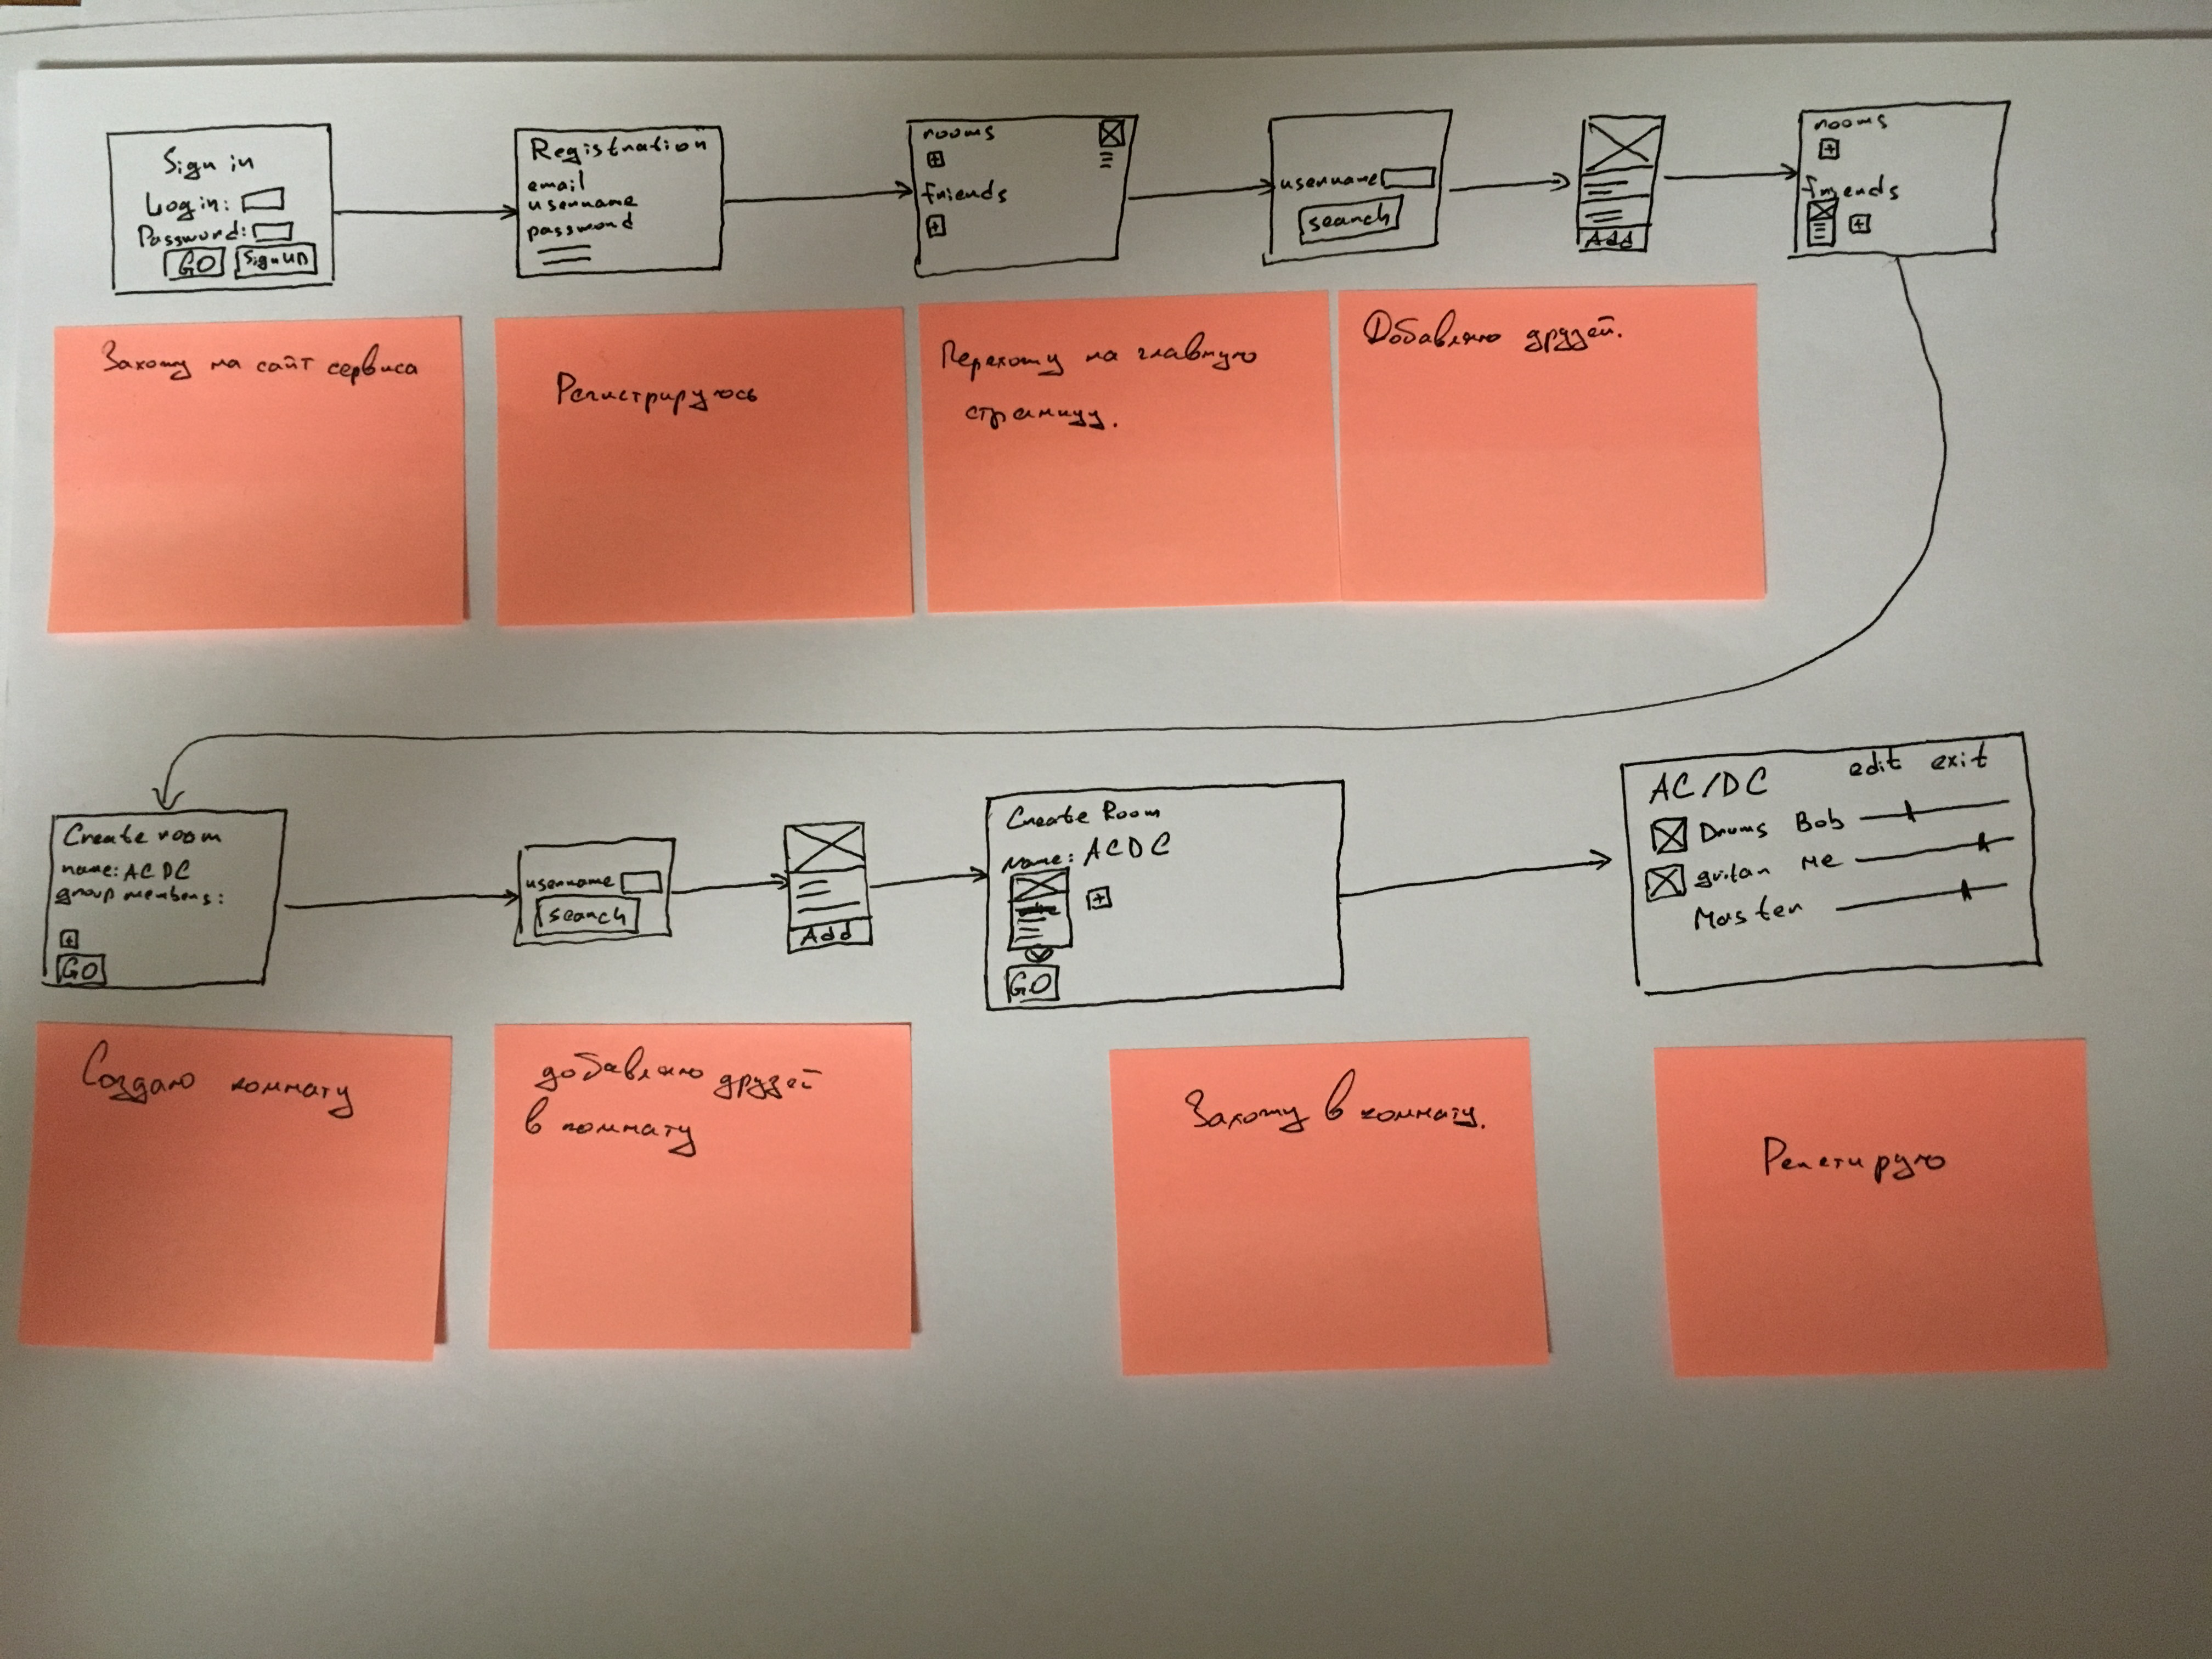 Sign in
Login:
Password:
GO
Sign UP
Registration
email
username
password
rooms
+
friends
+
username
search
Add
rooms
+
friends
+
Захожу на сайт сервиса
Регистрируюсь
Перехожу на главную
страницу.
Добавляю друзей.
Create room
name: ACDC
group members:
+
GO
username
search
Add
Create Room
Name: ACDC
+
GO
AC/DC edit exit
Drums Bob
guitar Me
Master
Создаю комнату
добавляю друзей
в комнату
Захожу в комнату.
Репетирую